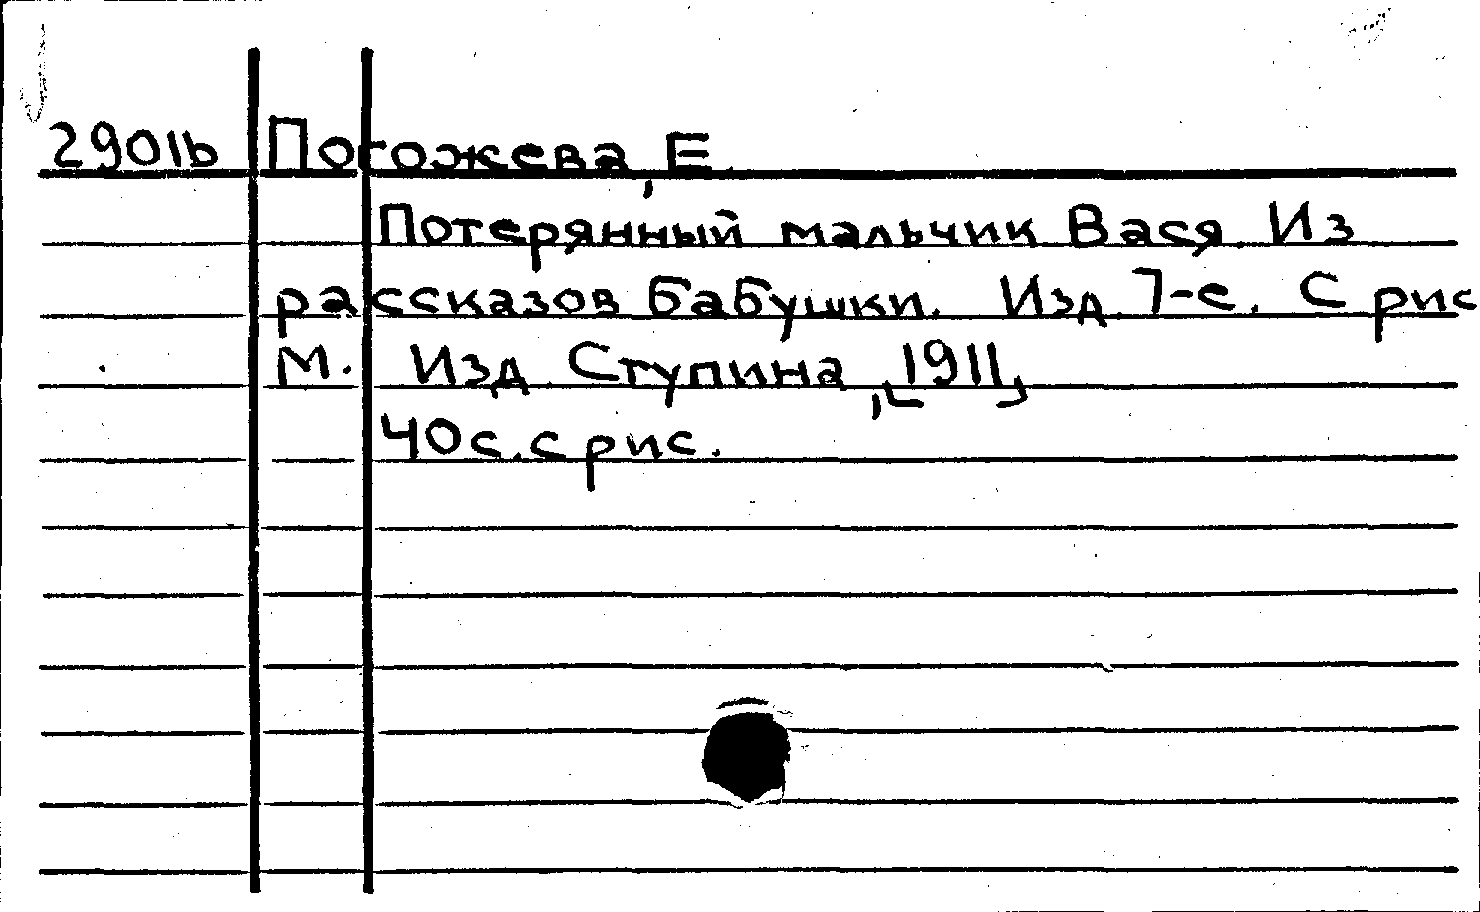 2901b Погожева, Е.
Потерянный мальчик Вася. Из
рассказов бабушки. Изд. 7-е. С рис
М. Изд. Ступина, [1911]
40 с. с рис.